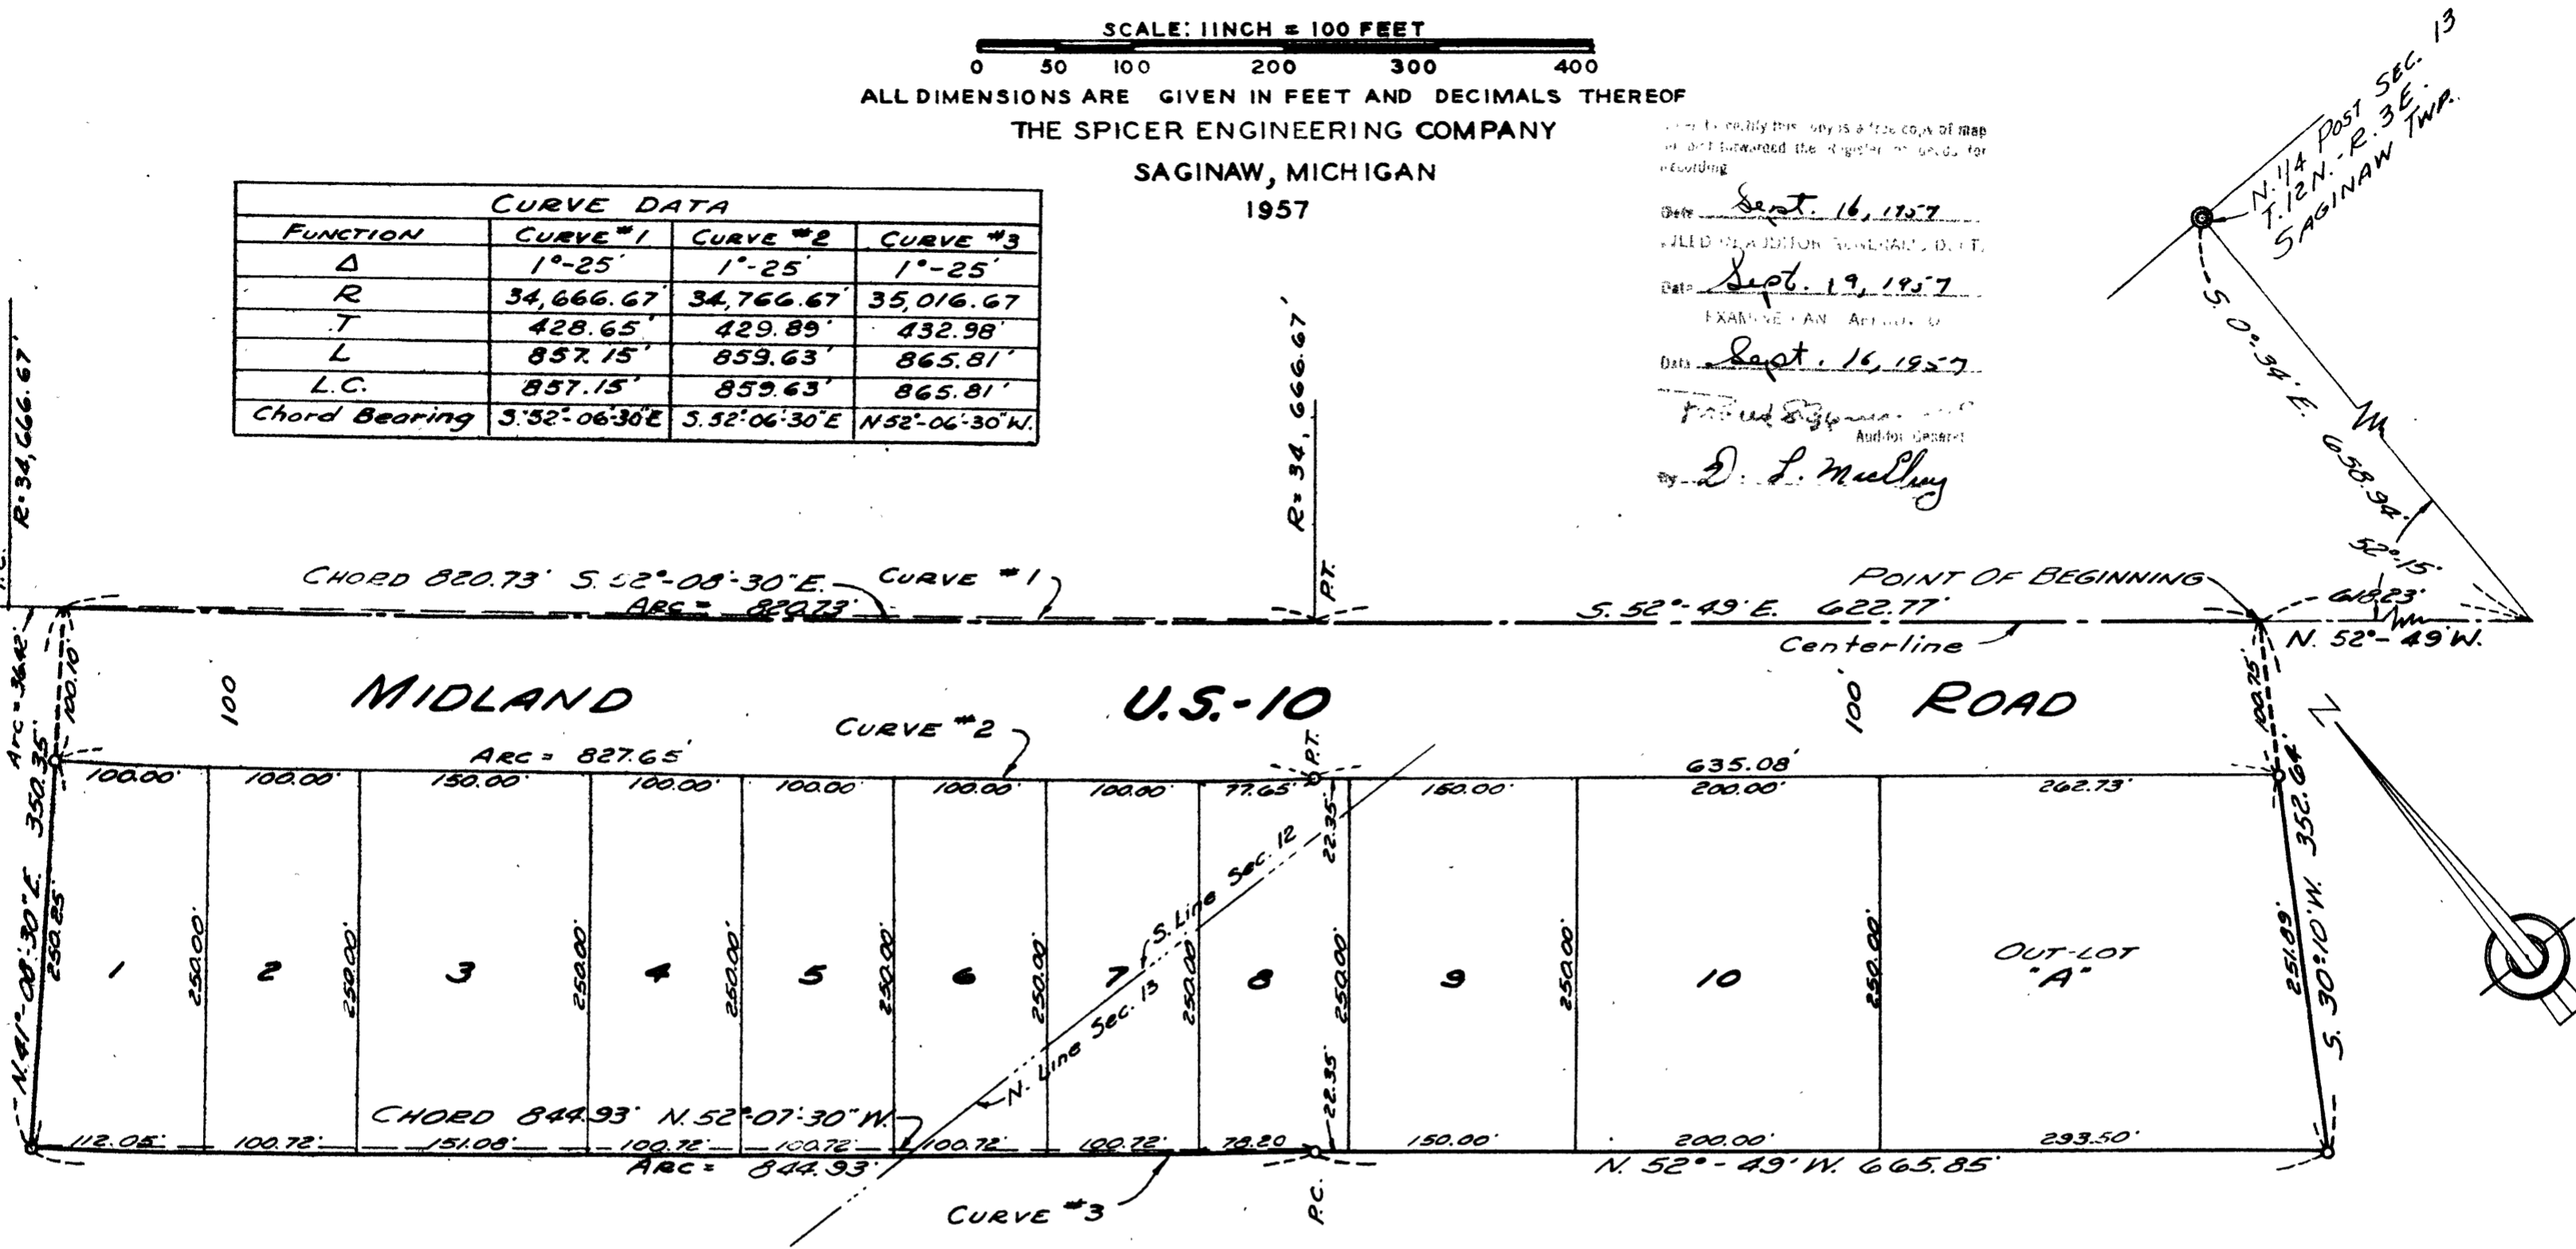 SCALE: 1 INCH = 100 FEET
0 50 100 200 300 400
ALL DIMENSIONS ARE GIVEN IN FEET AND DECIMALS THEREOF
THE SPICER ENGINEERING COMPANY
SAGINAW, MICHIGAN
1957
CURVE DATA
FUNCTION CURVE #1 CURVE #2 CURVE #3
Δ 1°-25' 1°-25' 1°-25'
R 34,666.67' 34,766.67' 35,016.67
T 428.65' 429.89' 432.98'
L 857.15' 859.63' 865.81'
L.C. 857.15' 859.63' 865.81'
Chord Bearing S.52°-06'-30"E S.52°-06'-30"E N52°-06'-30"W.
certify this copy is a true copy of map
forwarded the Register of Deeds for
recording
Date Sept. 16, 1957
FILED IN AUDITOR GENERAL'S DEPT.
Date Sept. 19, 1957
Date Sept. 16, 1957
Auditor General
By D. L.
N. 1/4 POST SEC. 13
T.12N.-R.3E.
SAGINAW TWP.
S. 0°-34' E. 658.94'
52°-15'
618.23'
N. 52°-49' W.
R=34,666.67'
R=34,666.67'
P.T.
CHORD 820.73' S. 52°-08'-30"E.
CURVE #1
ARC = 820.73'
POINT OF BEGINNING
S. 52°-49' E. 622.77'
Centerline
Arc = 36.42'
100.10'
100
MIDLAND U.S.-10 ROAD
100'
100.75'
N
CURVE #2
ARC = 827.65'
P.T.
635.08'
100.00' 100.00' 150.00' 100.00' 100.00' 100.00' 100.00' 77.65' 22.35' 150.00' 200.00' 262.73'
N.41°-08'-30"E. 350.35'
250.25'
250.00' 250.00' 250.00' 250.00' 250.00' 250.00' 250.00' 250.00' 250.00' 250.00'
251.89'
S. 30°10'W. 352.64'
1 2 3 4 5 6 7 8 9 10
OUT-LOT
"A"
S. Line Sec. 12
N. Line Sec. 13
CHORD 844.93' N.52°-07'-30"W.
112.05' 100.72' 151.08' 100.72' 100.72' 100.72' 100.72' 78.20 22.35' 150.00' 200.00' 293.50'
ARC = 844.93'
N. 52°-49' W. 665.85'
CURVE #3
P.C.